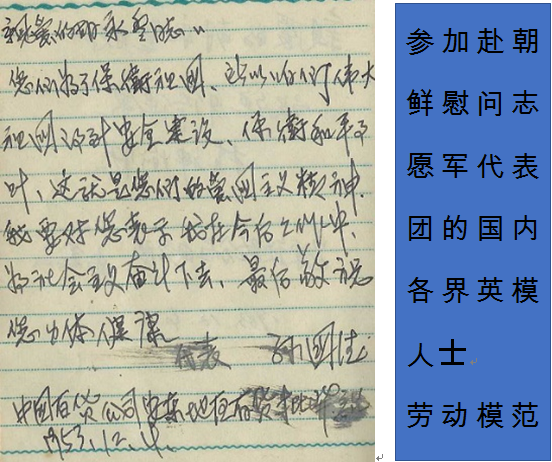 亲爱的永同志
您们为了保卫祖国、所以咱们伟大
祖国得到安全建设、保卫和平
叶、这就是您们的爱国主义精神.
我要对您表示我在今后工作中.
为社会主义奋斗下去、最后敬祝
您体健康
代表 国
中国百货公司安东地区
1953.12.4.
参加赴朝
鲜慰问志
愿军代表
团的国内
各界英模
人士
劳动模范